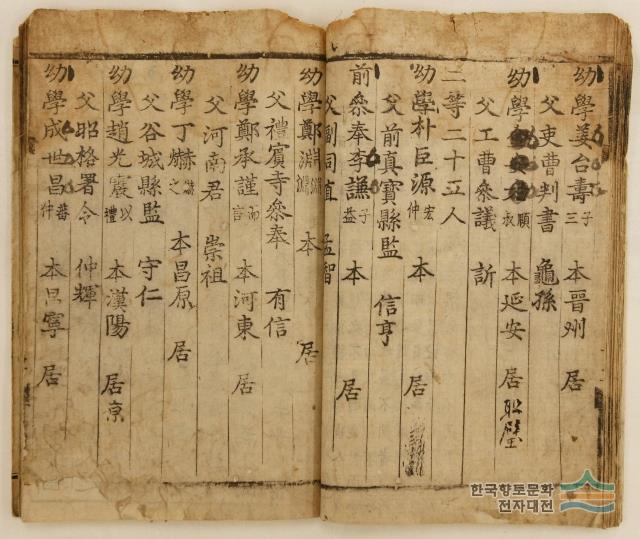 幼學姜台壽 三子 本晉州 居
父吏曹判書 龜孫
幼學 順衣 本延安 居
父工曹參議 訢
二等二十五人
幼學朴巨源 宏仲 本 居
父前真寶縣監 信亨
前參奉李謙 子益 本 居
父副司直 孟智
幼學鄭 本 居
父禮賓寺參奉 有信
幼學鄭承謹 而言 本河東 居
父河南君 崇祖
幼學丁赫 之 本昌原 居
父谷城縣監 守仁
幼學趙光 以禮 本漢陽 居京
父昭格署令 仲輝
幼學成世昌 蕃仲 本昌寧 居
한국향토문화
전자대전